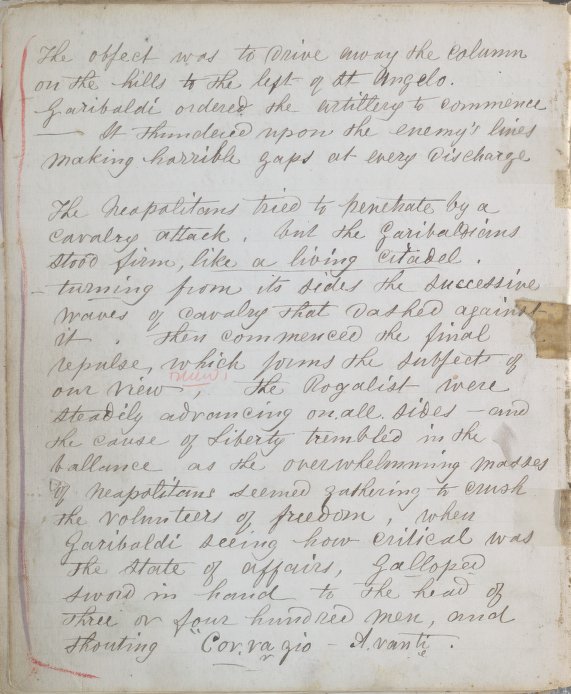 The object was to drive away the column
on the hills to the left of St Angelo.
Garibaldi ordered the artillery to commence
It thundered upon the enemy's lines
making horrible gaps at every discharge
The Neapolitans tried to penetrate by a
cavalry attack, but the Garibaldians
stood firm, like a living citadel.
turning from its sides the successive
waves of cavalry that dashed against
it. Then commenced the final
repulse, which forms the subject of
our view, The Royalist were
view,
steadily advancing on all sides - and
the cause of Liberty trembled in the
ballance as the overwhelmning masses
of Neapolitans seemed gathering to crush
the volunteers of freedom, when
Garibaldi seeing how critical was
the state of affairs, Galloped
sword in hand to the head of
three or four hundred men, and
shouting "Cor.va gio - A.vanti.